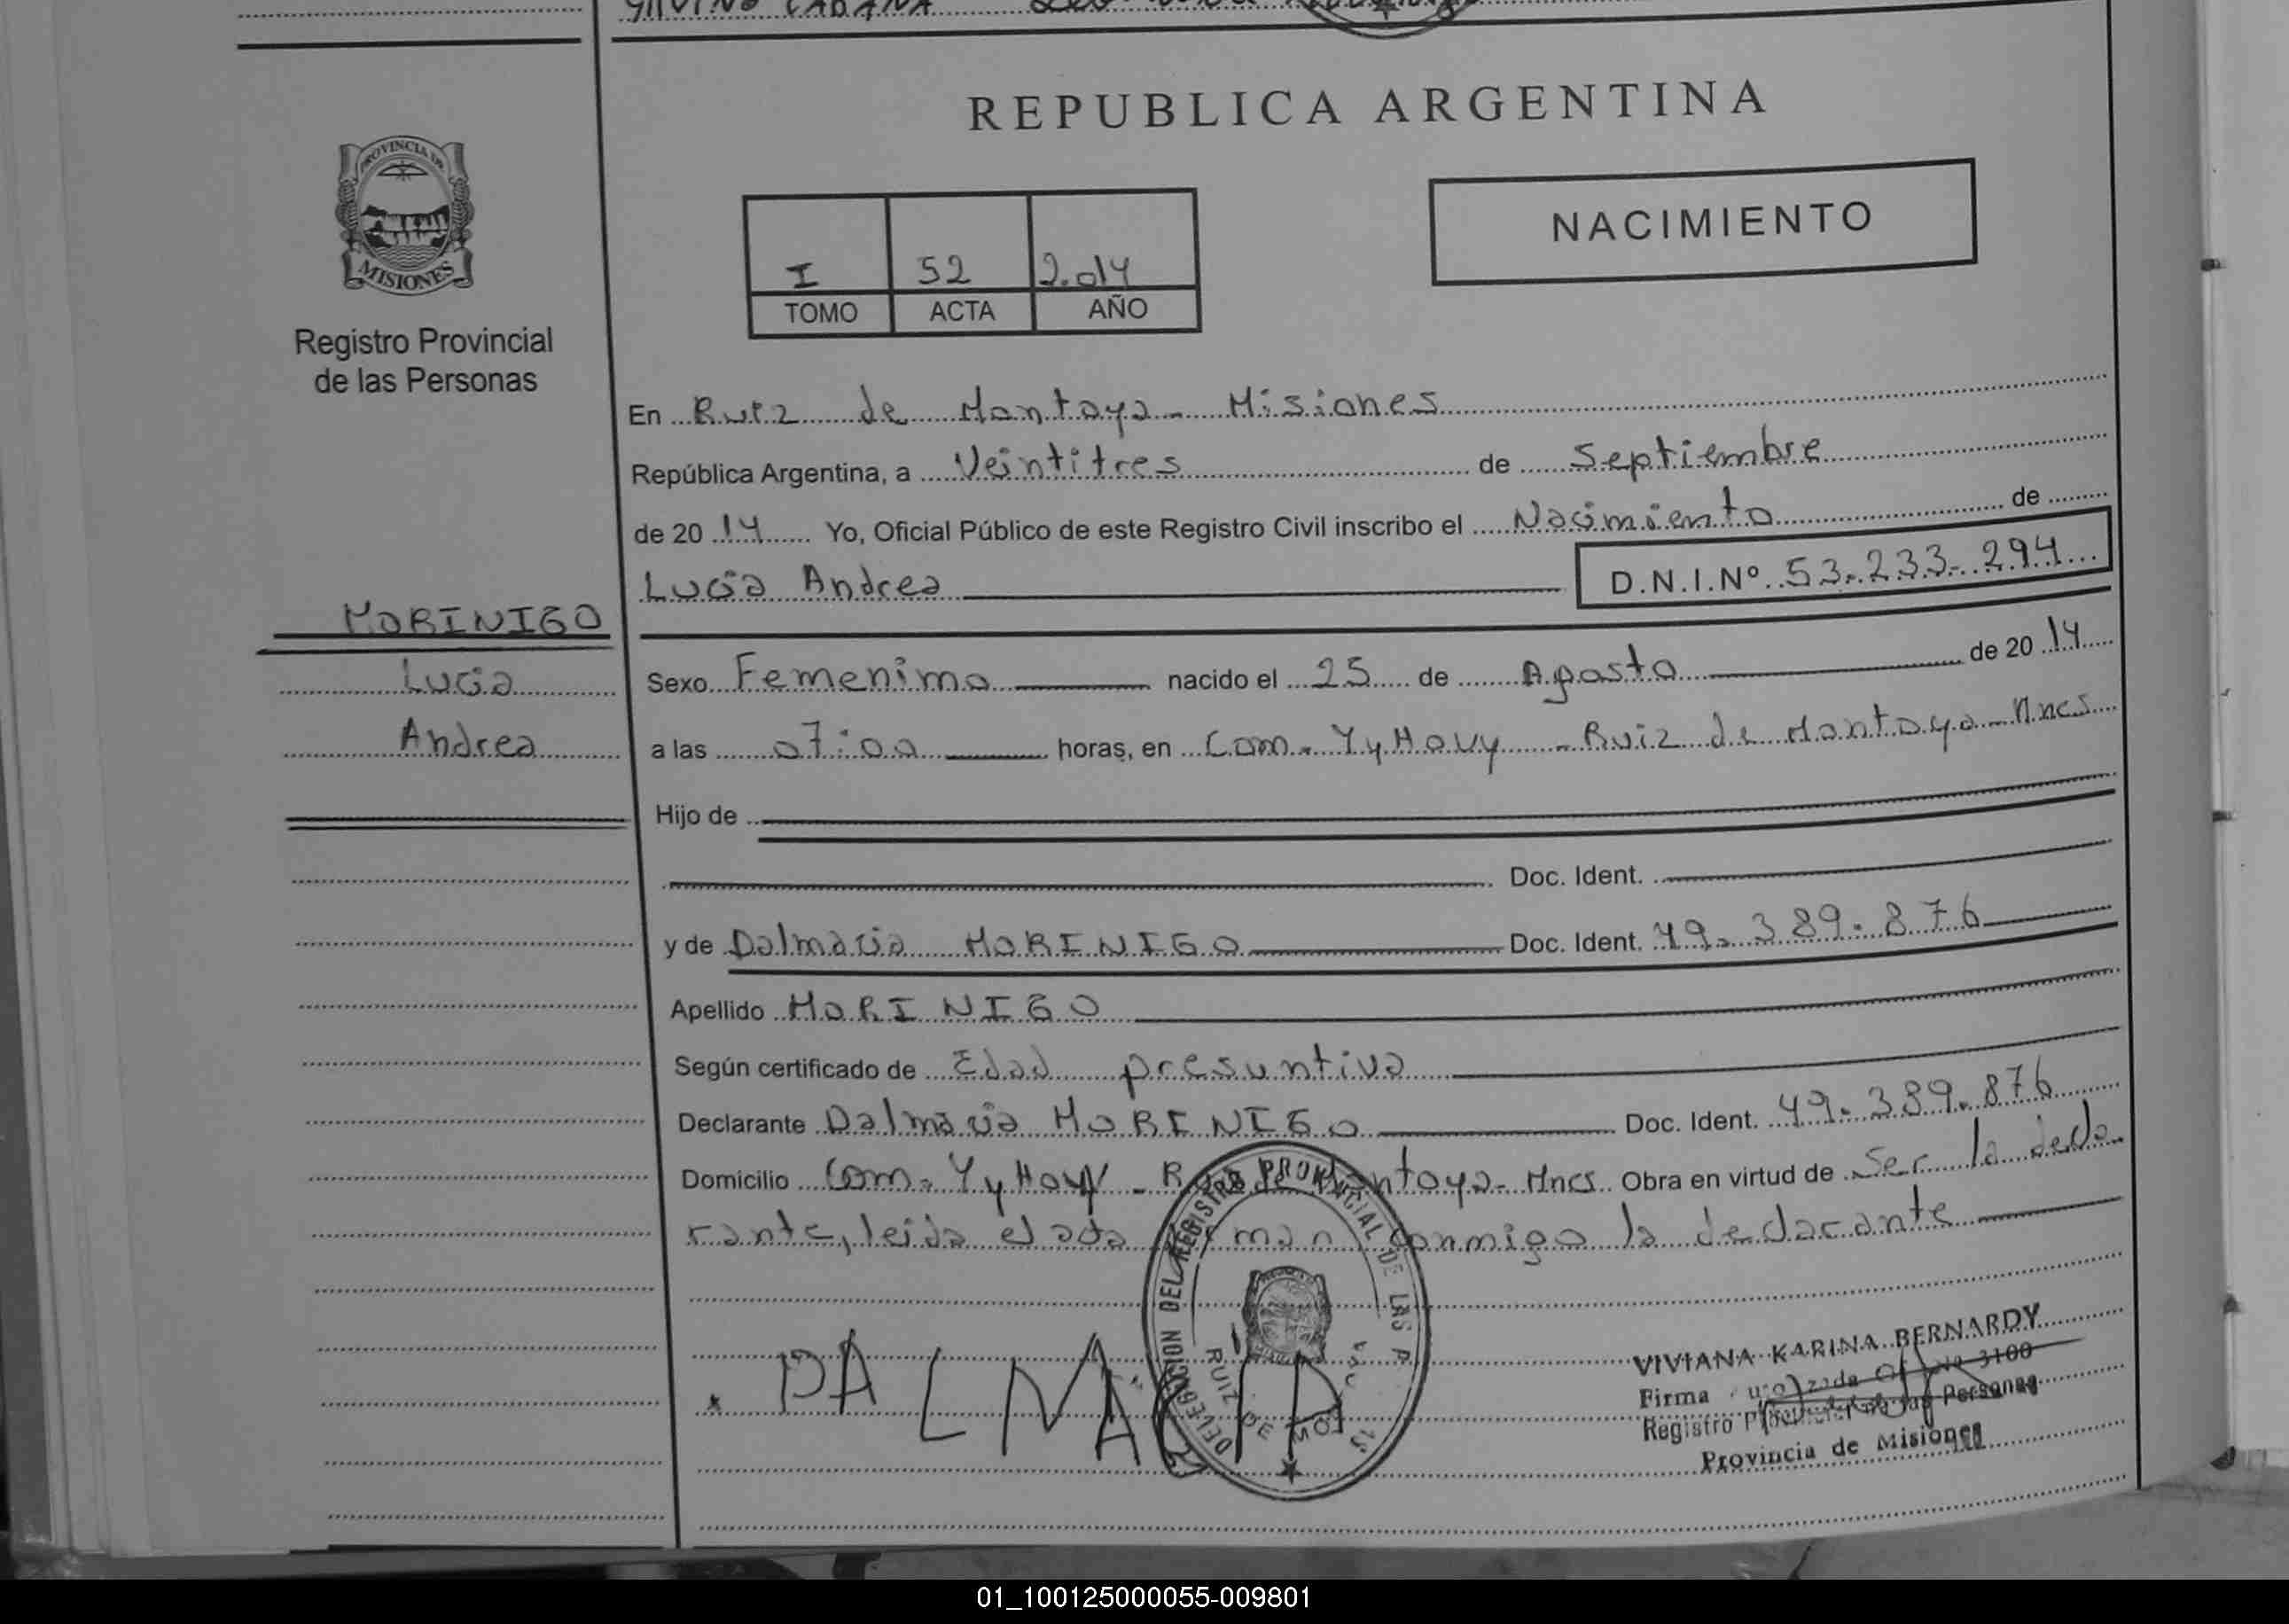 PROVINCIA DE
MISIONES
Registro Provincial
de las Personas
MORINIGO
Lucia
Andrea
REPUBLICA ARGENTINA
NACIMIENTO
I 52 2.014
TOMO ACTA AÑO
En Ruiz de Montoya - Misiones
República Argentina, a Veintitres de Septiembre
de 20 14 Yo, Oficial Público de este Registro Civil inscribo el Nacimiento de
Lucia Andrea D.N.I.Nº 53.233.294
Sexo Femenino nacido el 25 de Agosto de 20 14
a las 07:00 horas, en Com. Yy Hovy - Ruiz de Montoya - Mnes
Hijo de
Doc. Ident.
y de Dalmacia MORINIGO Doc. Ident. 49.389.876
Apellido MORINIGO
Según certificado de Edad presuntiva
Declarante Dalmacia MORINIGO Doc. Ident. 49.389.876
Domicilio Com. Yy Hovy - R de Montoya - Mnes Obra en virtud de Ser la decla
rante, leida el acta firman conmigo la declarante
DELEGACION DEL REGISTRO PROVINCIAL DE LAS P
RUIZ DE
DALMACIA
VIVIANA KARINA BERNARDY
Firma 3100
Registro Personas
Provincia de Misiones
01_100125000055-009801